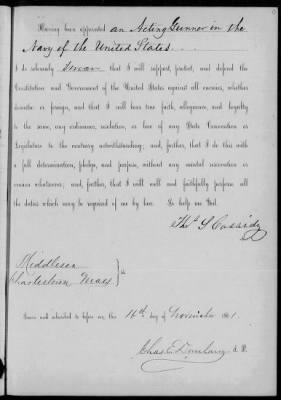 Having been appointed an Acting Gunner in the
Navy of the United States
I do solemnly swear that I will support, protect, and defend the
Constitution and Government of the United States against all enemies, whether
domestic or foreign, and that I will bear true faith, allegiance, and loyalty
to the same, any ordinance, resolution, or law of any State Convention or
Legislature to the contrary notwithstanding; and, further, that I do this with
a full determination, pledge, and purpose, without any mental reservation or
evasion whatsoever; and, further, that I will well and faithfully perform all
the duties which may be required of me by law. So help me God.
Thos S Cassidy
Middlesex
Charlestown Mass } ss
Sworn and subscribed to before me this 16th day of November 1861.
Chas. E. J. P.